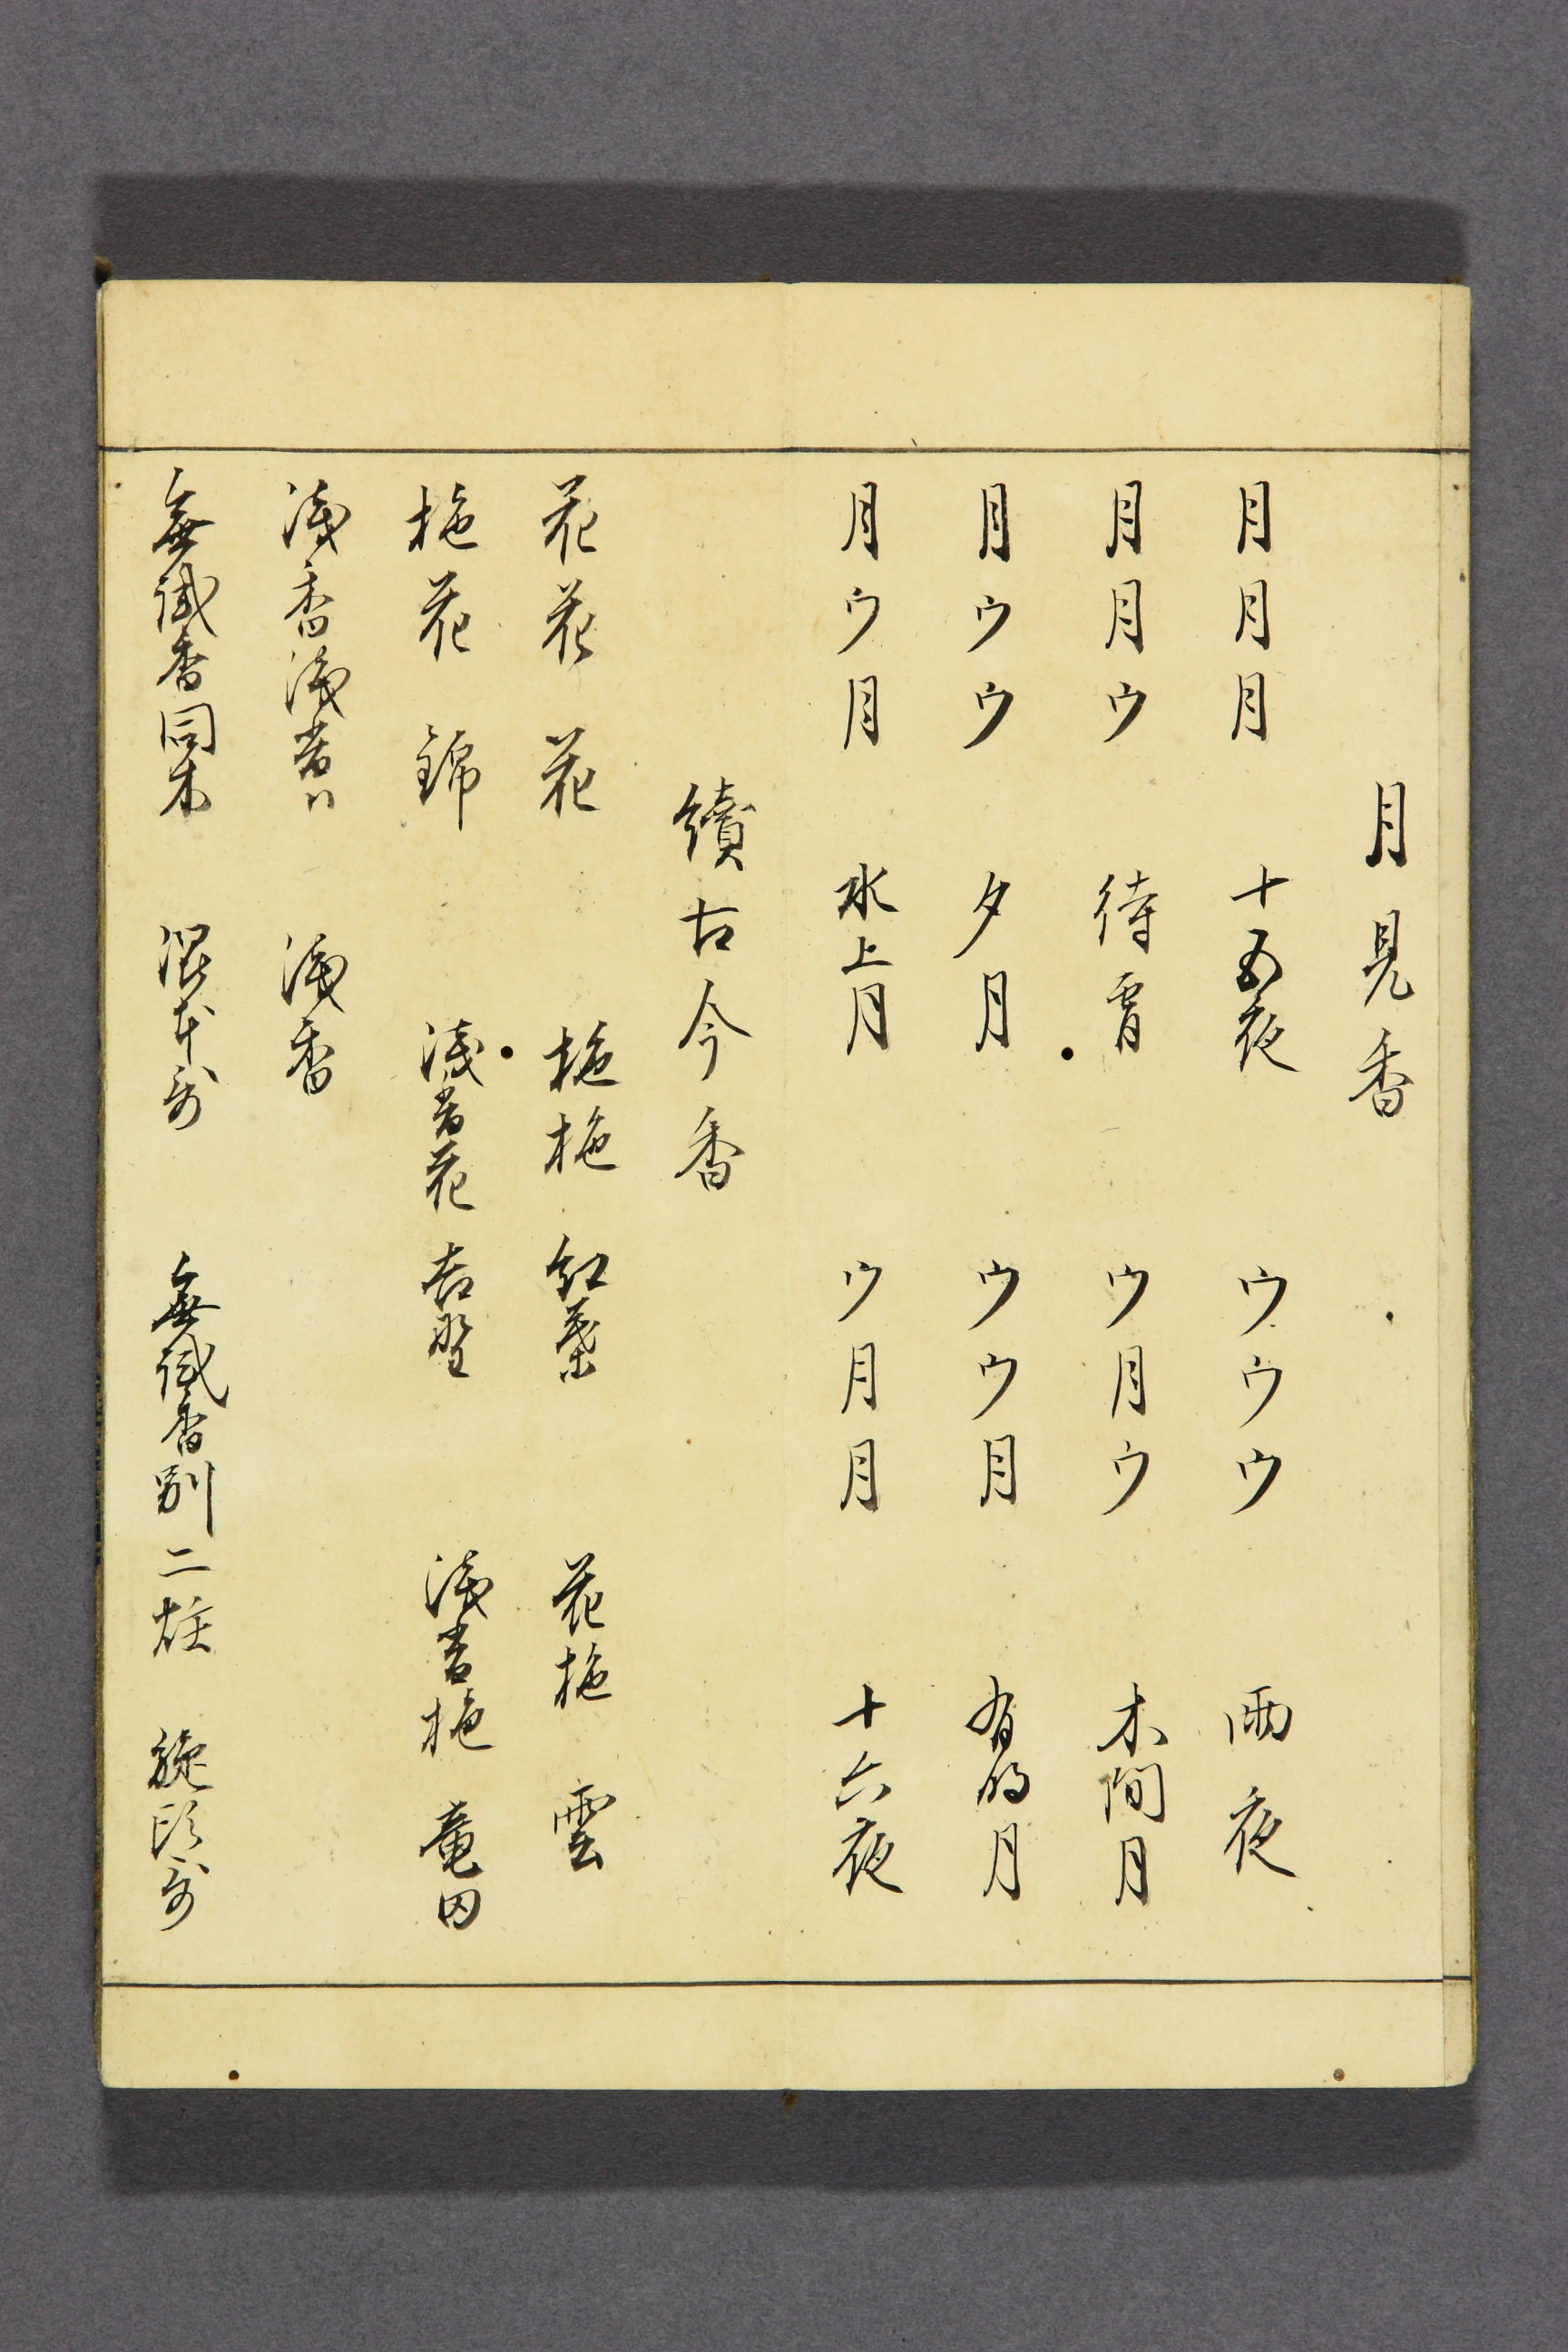 月見香
月月月 十五夜 ウウウ 雨夜
月月ウ 待宵 ウ月ウ 木間月
月ウウ 夕月 ウウ月 有明月
月ウ月 水上月 ウ月月 十六夜
續古今香
花花 花 栬栬 紅葉 花栬 雲
栬花 錦 浅香花 吉野 浅香栬 竜田
浅香浅香ハ 浅香
無試香同木 混本哥 無試香別二炷 旋頭哥